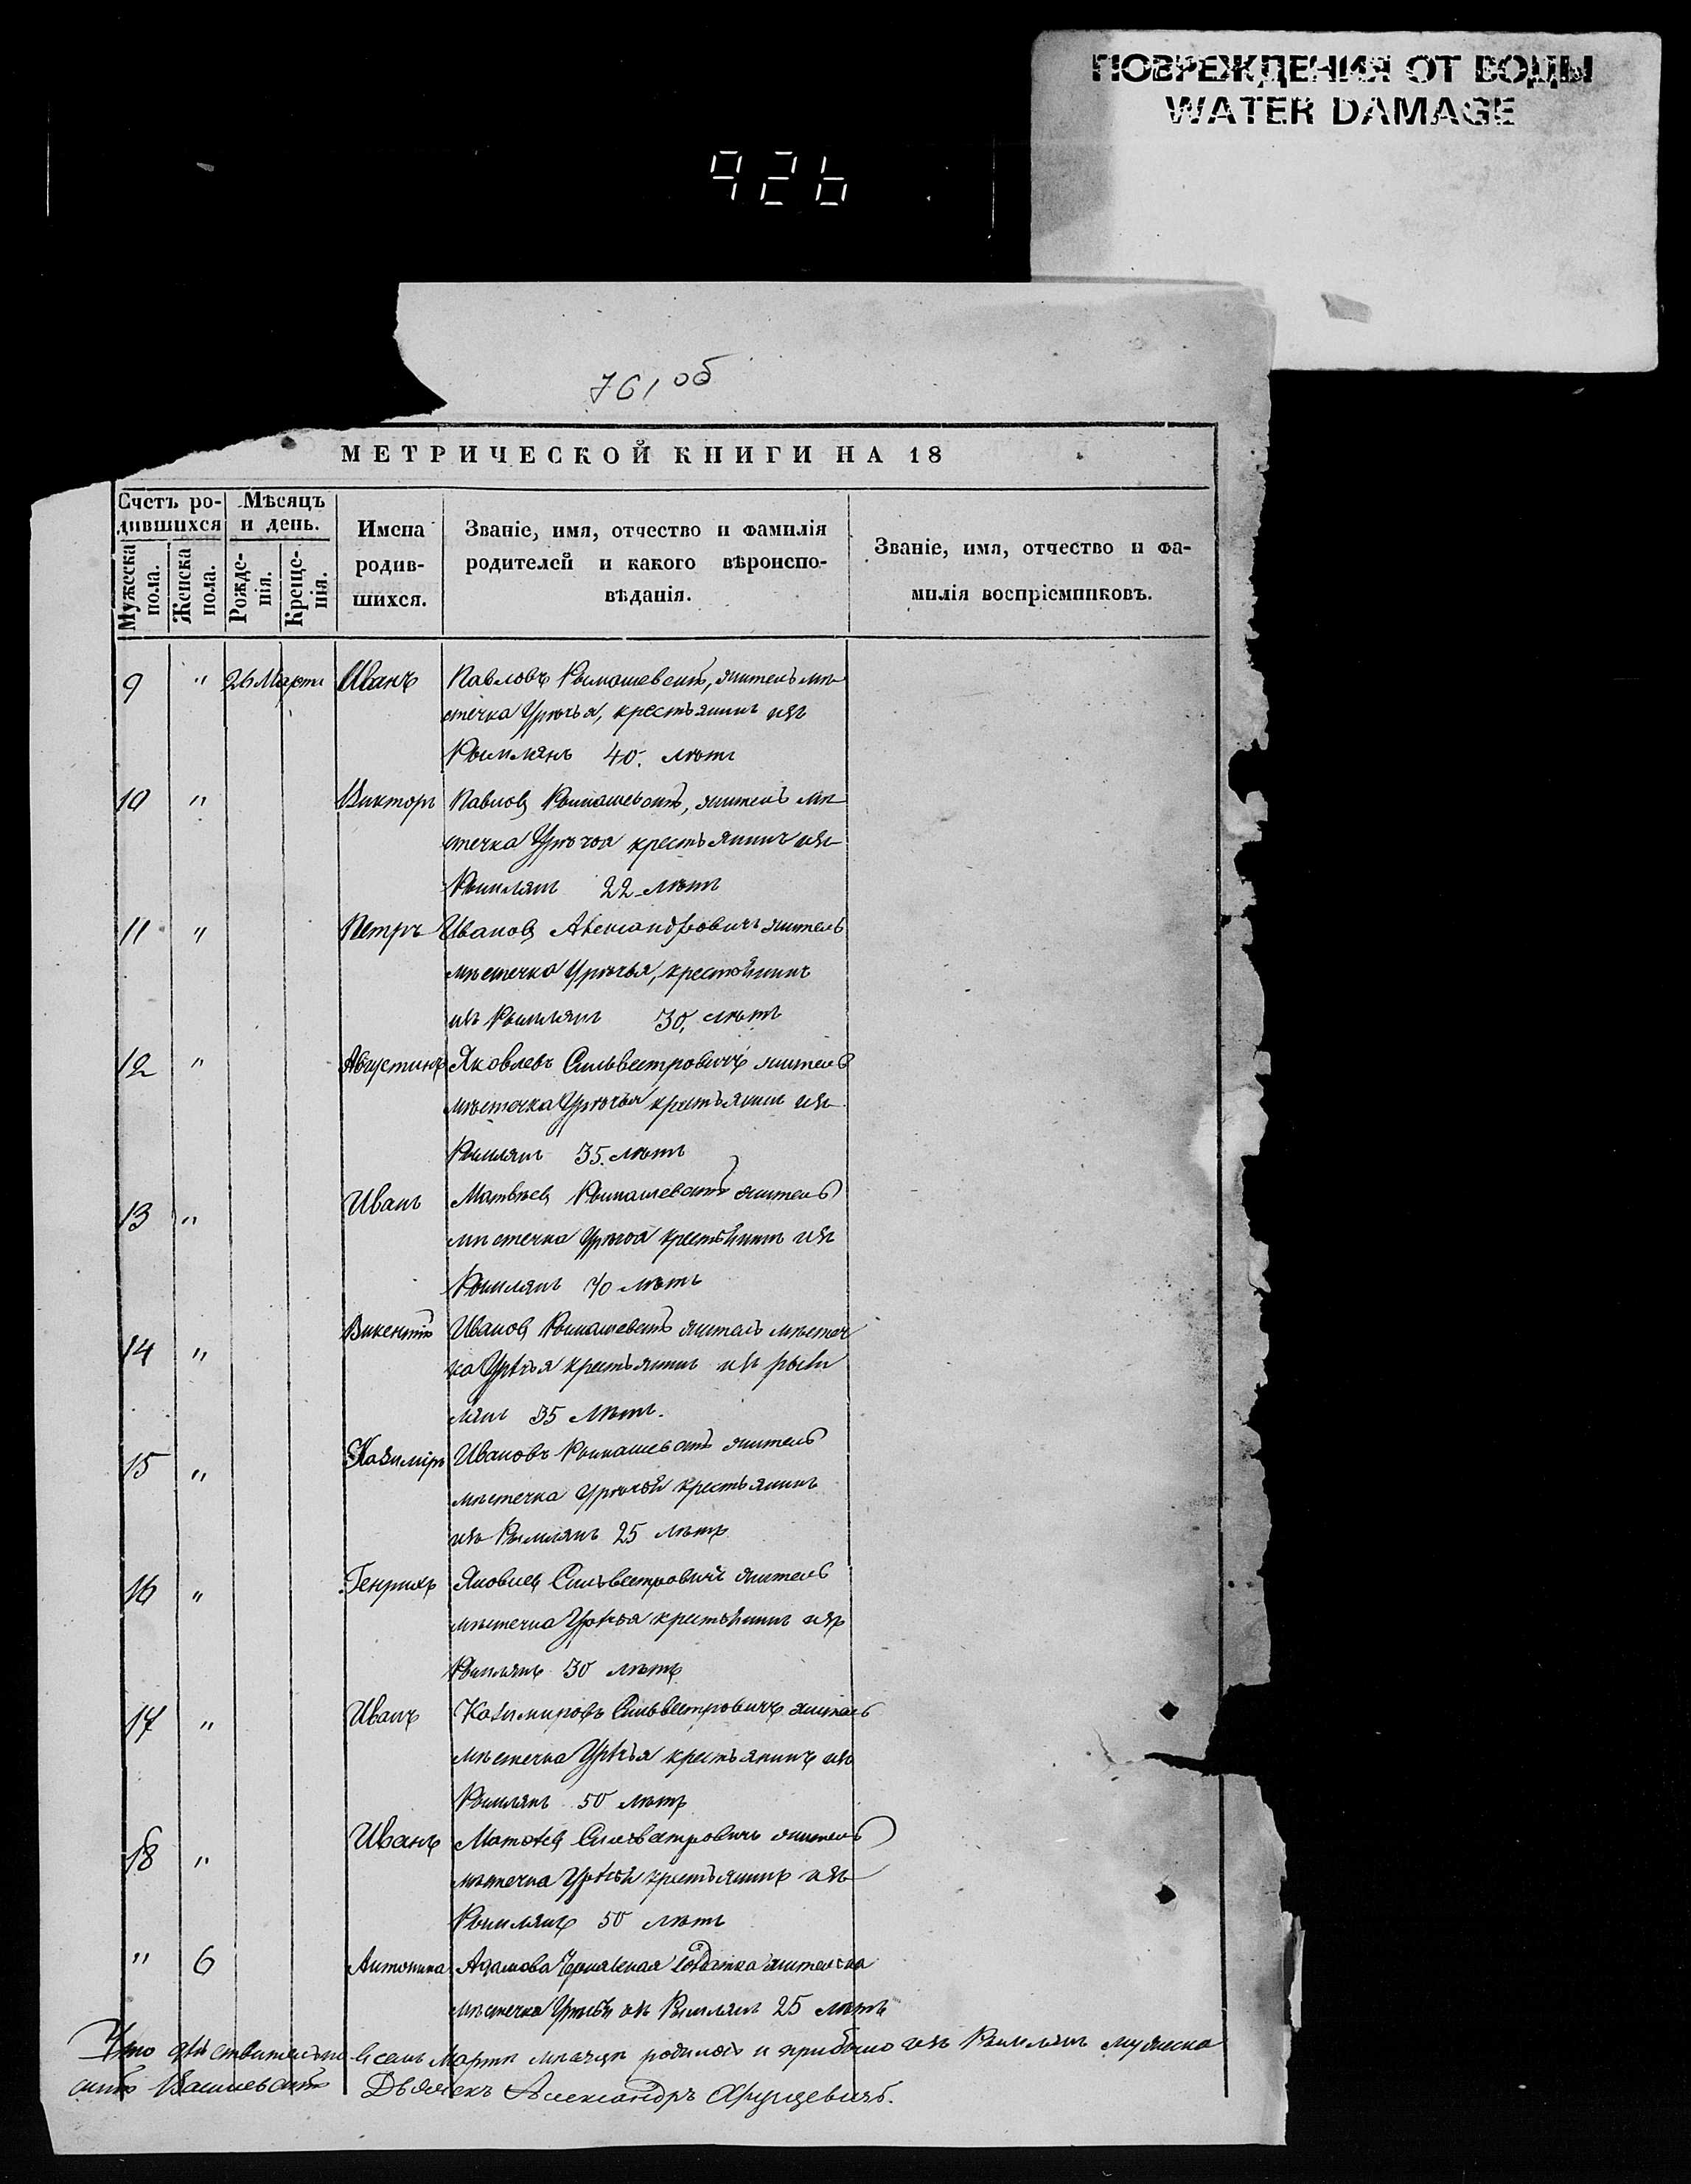 ПОВРЕЖДЕНИЯ ОТ ВОДЫ
WATER DAMAGE
926
761 об
МЕТРИЧЕСКОЙ КНИГИ НА 18
Счетъ ро-
дившихся
Мѣсяцъ
и день.
Мужеска
пола.
Женска
пола.
Рожде-
нія.
Креще-
нія.
Имена
родив-
шихся.
Званіе, имя, отчество и фамилія
родителей и какого вѣроиспо-
вѣданія.
Званіе, имя, отчество и фа-
милія воспріемниковъ.
9 " 26 Марта Иванъ Павловъ Рымашевскій, житель мѣ
стечка Урѣчья, крестьянинъ изъ
Римлянъ 40. лѣтъ
10 " Викторъ Павловъ Рымашевскій, житель мѣ
стечка Урѣчья крестьянинъ изъ
Римлянъ 22 лѣтъ
11 " Петръ Ивановъ Александровичъ житель
мѣстечка Урѣчья, крестьянинъ
изъ Римлянъ 30. лѣтъ
12 " Августинъ Яковлевъ Сильвестровичъ житель
мѣстечка Урѣчья крестьянинъ изъ
Римлянъ 35. лѣтъ
13 " Иванъ Матвѣевъ Рымашевскій житель
мѣстечка Урѣчья крестьянинъ изъ
Римлянъ 40 лѣтъ
14 " Викентій Ивановъ Рымашевскій житель мѣстеч
ка Урѣчья крестьянинъ изъ рим
лянъ 35 лѣтъ.
15 " Казиміръ Ивановъ Рымашевскій житель
мѣстечка Урѣчья крестьянинъ
изъ Римлянъ 25 лѣтъ
16 " Генрихъ Яковлевъ Сильвестровичъ житель
мѣстечка Урѣчья крестьянинъ изъ
Римлянъ 30 лѣтъ
17 " Иванъ Казимировъ Сильвестровичъ житель
мѣстечка Урѣчья крестьянинъ изъ
Римлянъ 50 лѣтъ
18 " Иванъ Матвѣевъ Сильвестровичъ житель
мѣстечка Урѣчья крестьянинъ изъ
Римлянъ 50 лѣтъ
" 6 Антонина Адамова Чернявская солдатка жителька
мѣстечка Урѣчья изъ Римлянъ 25 лѣтъ
Что дѣйствительно въ семъ Мартѣ мѣсяцѣ родилось и прибыло изъ Римлянъ мужеска
Дьячекъ Александръ